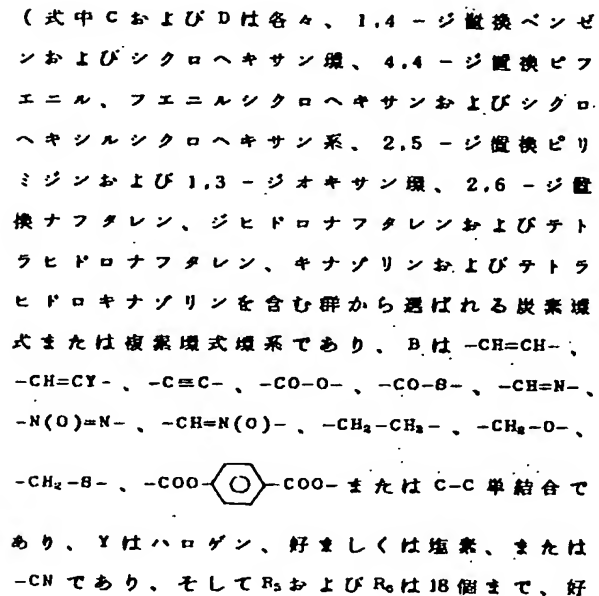 (式中CおよびDは各々、1,4-ジ置換ベンゼ
ンおよびシクロヘキサン環、4,4-ジ置換ピフ
エニル、フエニルシクロヘキサンおよびシクロ
ヘキシルシクロヘキサン系、2,5-ジ置換ピリ
ミジンおよび1,3-ジオキサン環、2,6-ジ置
換ナフタレン、ジヒドロナフタレンおよびテト
ラヒドロナフタレン、キナゾリンおよびテトラ
ヒドロキナゾリンを含む群から選ばれる炭素環
式または複素環式環系であり、Bは-CH=CH-、
-CH=CY-、-C≡C-、-CO-O-、-CO-S-、-CH=N-、
-N(O)=N-、-CH=N(O)-、-CH₂-CH₂-、-CH₂-O-、
-CH₂-S-、-COO-COO-またはC-C単結合で
あり、Yはハロゲン、好ましくは塩素、または
-CNであり、そしてR₅およびR₆は18個まで、好